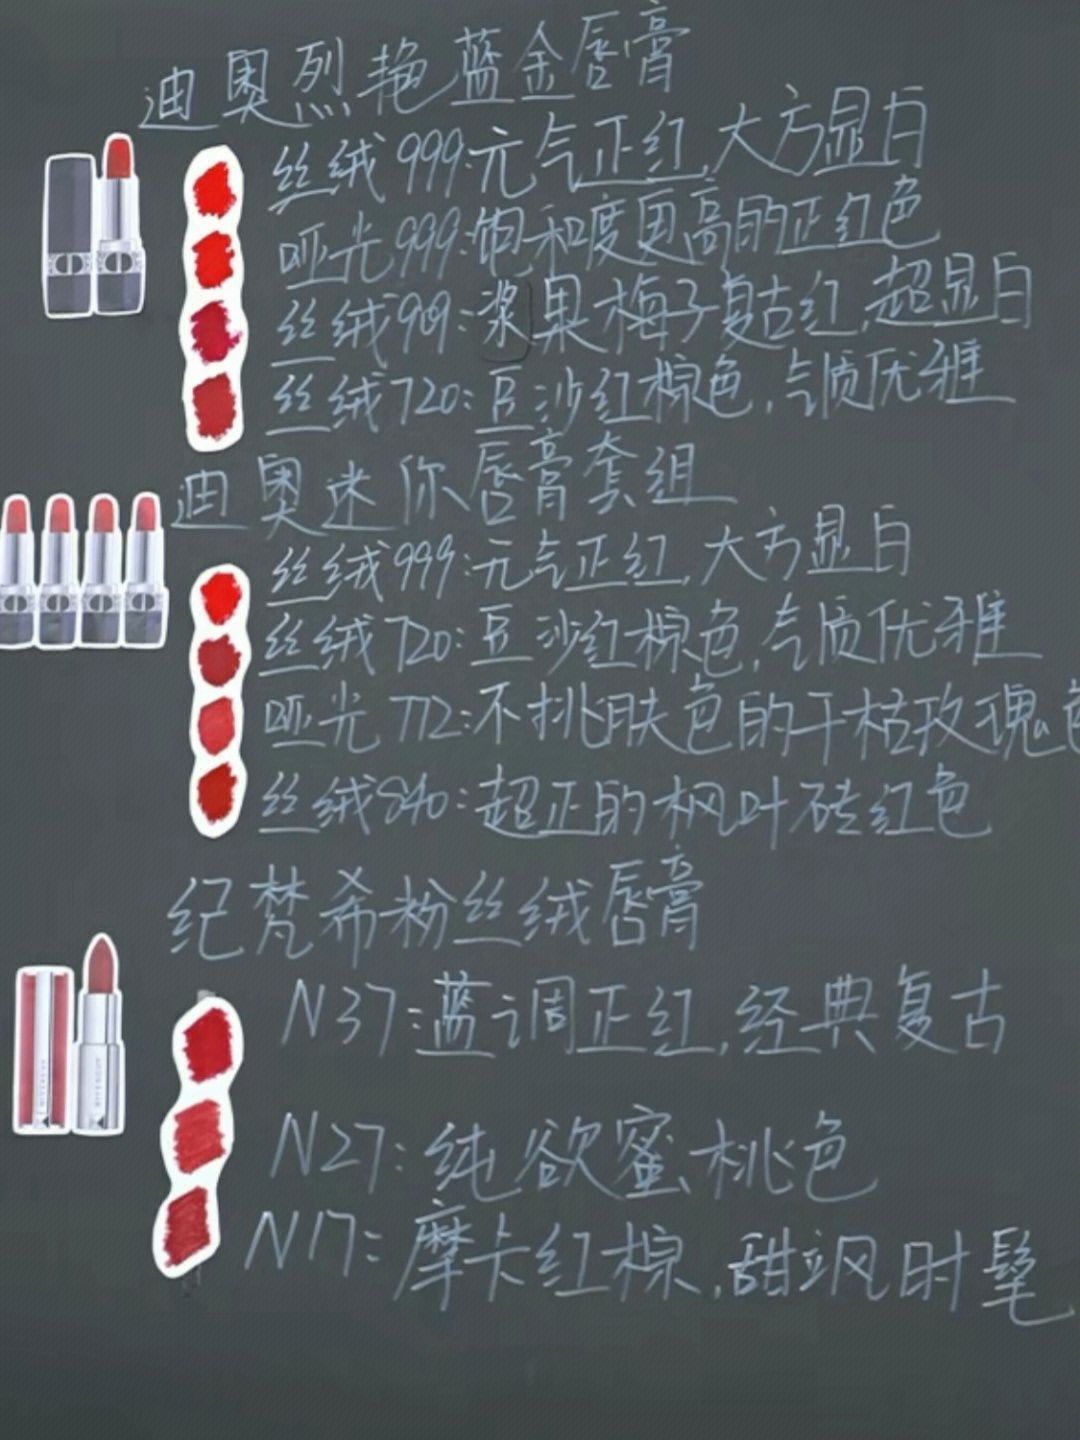 迪奥烈艳蓝金唇膏
丝绒999:元气正红,大方显白
哑光999:饱和度更高的正红色
丝绒909:浆果梅子复古红,超显白
丝绒720:豆沙红棕色,气质优雅
迪奥迷你唇膏套组
丝绒999:元气正红,大方显白
丝绒720:豆沙红棕色,气质优雅
哑光772:不挑肤色的干枯玫瑰色
丝绒840:超正的枫叶砖红色
纪梵希粉丝绒唇膏
N37:蓝调正红,经典复古
N27:纯欲蜜桃色
N17:摩卡红棕,甜飒时髦